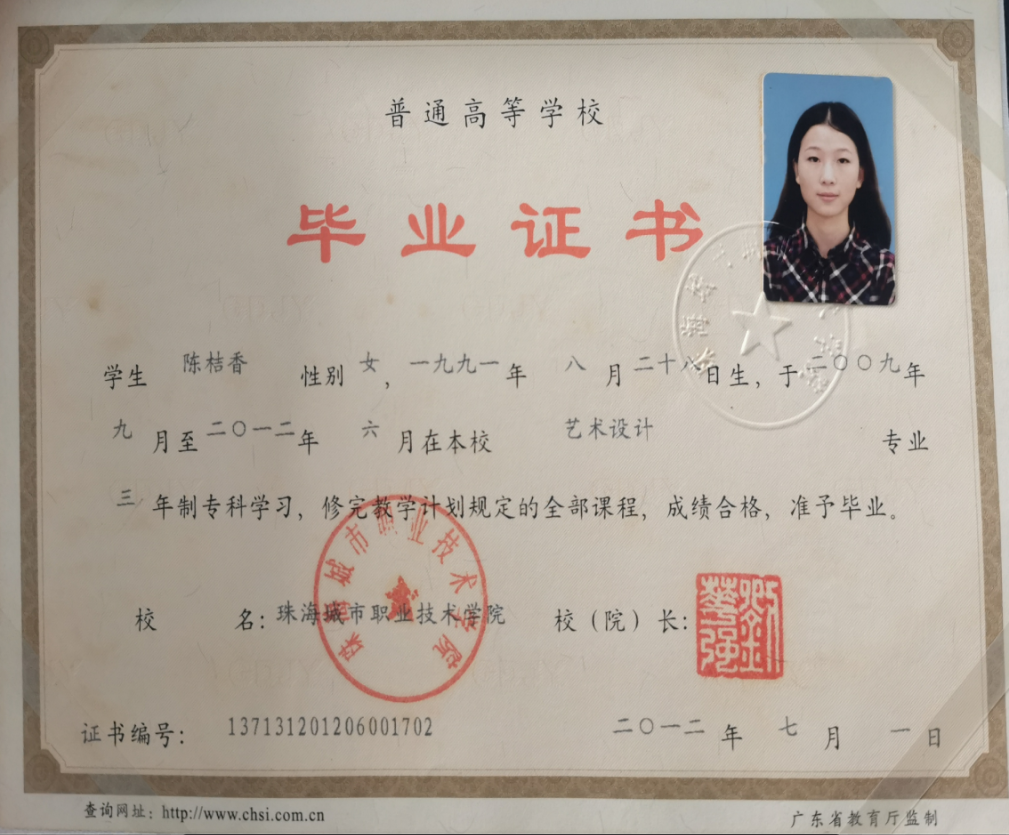 普通高等学校
毕业证书
学生 陈桔香 性别 女，一九九一年 八 月二十八日生，于二〇〇九年
九 月至二〇一二年 六 月在本校 艺术设计 专业
三 年制专科学习，修完教学计划规定的全部课程，成绩合格，准予毕业。
校 名：珠海城市职业技术学院 校（院）长：
珠海城市职业技术学院
刘华强
证书编号： 137131201206001702 二〇一二 年 七 月 一 日
查询网址：http://www.chsi.com.cn 广东省教育厅监制